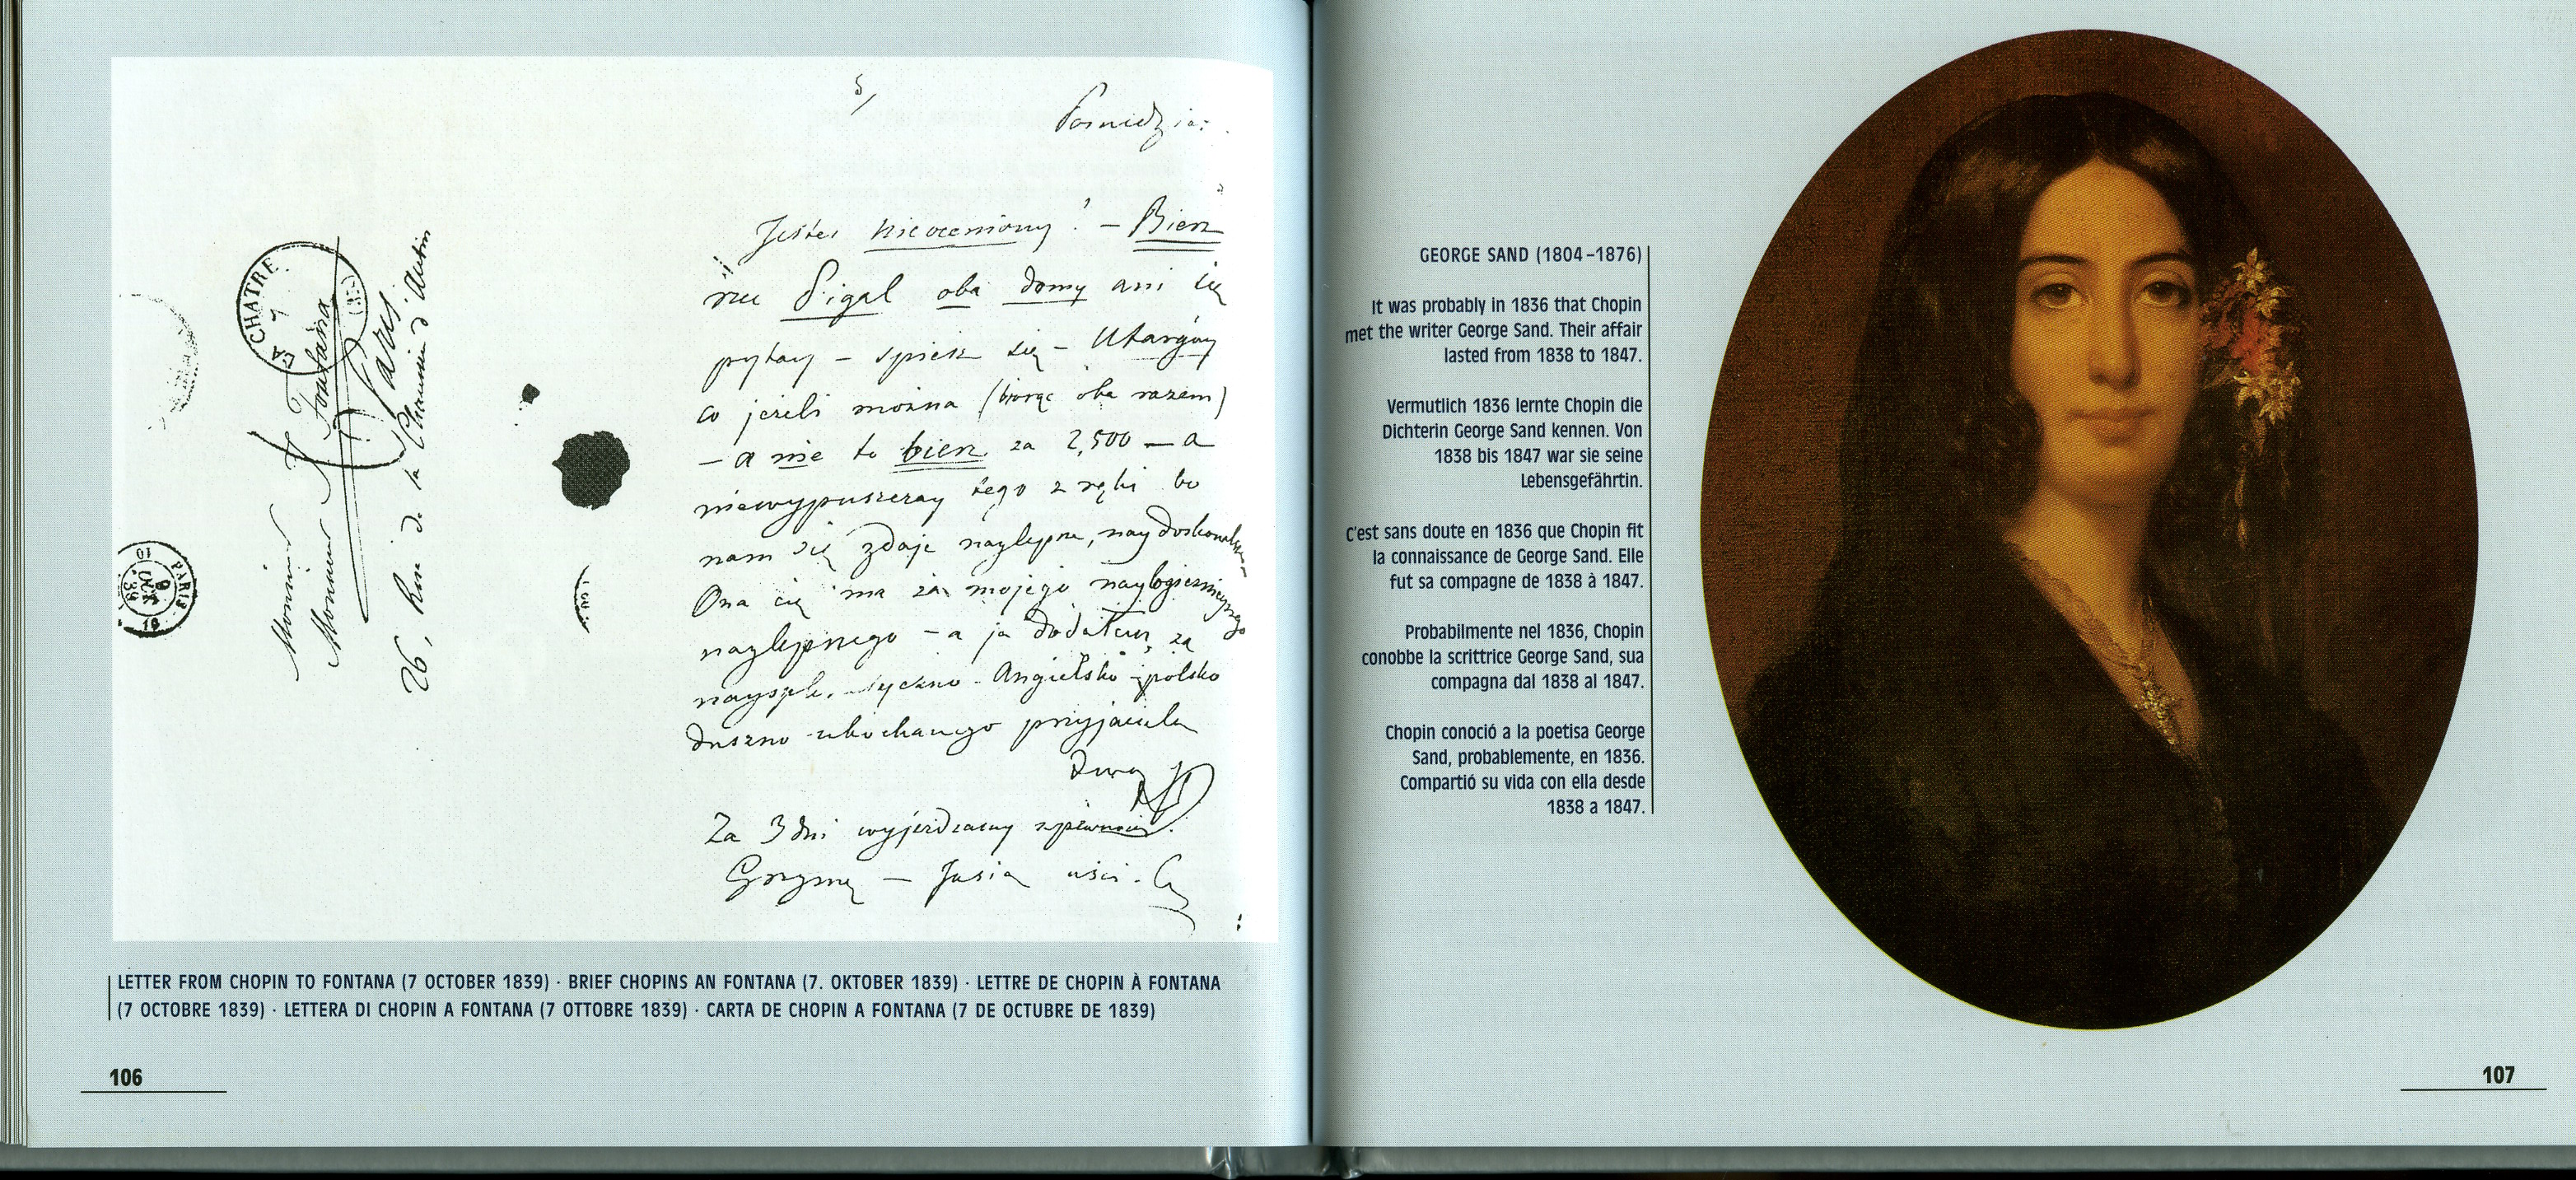 5/
Jesteś nieoceniony! — Bierz
rue Pigal oba domy ani się
pytaj — spiesz się — Utarguj
co jeżeli można (biorąc oba razem)
— a nie to bierz za 2,500 — a
niewypuszczay tego z ręki bo
nam się zdaje naylepsze, naydoskonalsze
Ona cię ma za mojego naylogicznieyszego
naylepszego — a ja dodałem, za
Angielsko-polsko
duszno ukochanego przyjaciela
Za 3 dni wyjeżdzamy
Grzymę — Jasia uści.
LA CHATRE
7
(35)
Monsieur
Monsieur J. Fontana
Fontana
à Paris
26, Rue de la Chaussée d'Antin
PARIS
10
9
OCT
39
LETTER FROM CHOPIN TO FONTANA (7 OCTOBER 1839) · BRIEF CHOPINS AN FONTANA (7. OKTOBER 1839) · LETTRE DE CHOPIN À FONTANA
(7 OCTOBRE 1839) · LETTERA DI CHOPIN A FONTANA (7 OTTOBRE 1839) · CARTA DE CHOPIN A FONTANA (7 DE OCTUBRE DE 1839)
106
GEORGE SAND (1804–1876)
It was probably in 1836 that Chopin
met the writer George Sand. Their affair
lasted from 1838 to 1847.
Vermutlich 1836 lernte Chopin die
Dichterin George Sand kennen. Von
1838 bis 1847 war sie seine
Lebensgefährtin.
C'est sans doute en 1836 que Chopin fit
la connaissance de George Sand. Elle
fut sa compagne de 1838 à 1847.
Probabilmente nel 1836, Chopin
conobbe la scrittrice George Sand, sua
compagna dal 1838 al 1847.
Chopin conoció a la poetisa George
Sand, probablemente, en 1836.
Compartió su vida con ella desde
1838 a 1847.
107